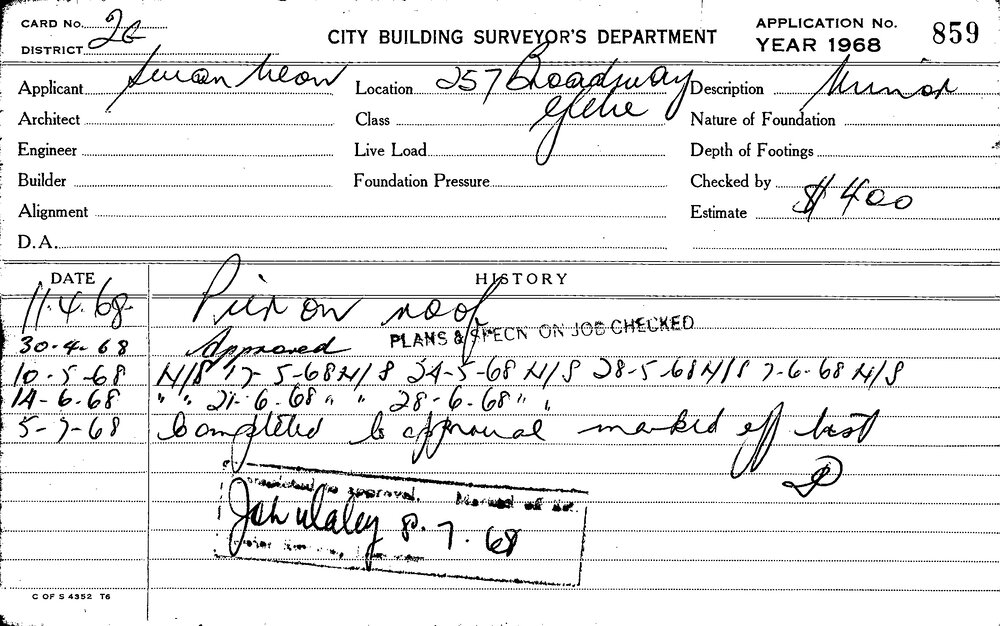 CARD No. 2C
DISTRICT
CITY BUILDING SURVEYOR'S DEPARTMENT
APPLICATION No. 859
YEAR 1968
Applicant Swan Neon
Location 257 Broadway
Glebe
Description Minor
Architect
Class
Nature of Foundation
Engineer
Live Load
Depth of Footings
Builder
Foundation Pressure
Checked by
Alignment
Estimate $400
D.A.
DATE HISTORY
11.4.68 on roof
PLANS & SPECN ON JOB CHECKED
30-4-68 Approved
10-5-68 N/S 17-5-68 N/S 24-5-68 N/S 28-5-68 N/S 7-6-68 N/S
14-6-68 " " 21-6-68 " " 28-6-68 " "
5-7-68 Completed to approval marked off list
approval. Marked off
8.7.68
C OF S 4352 T6